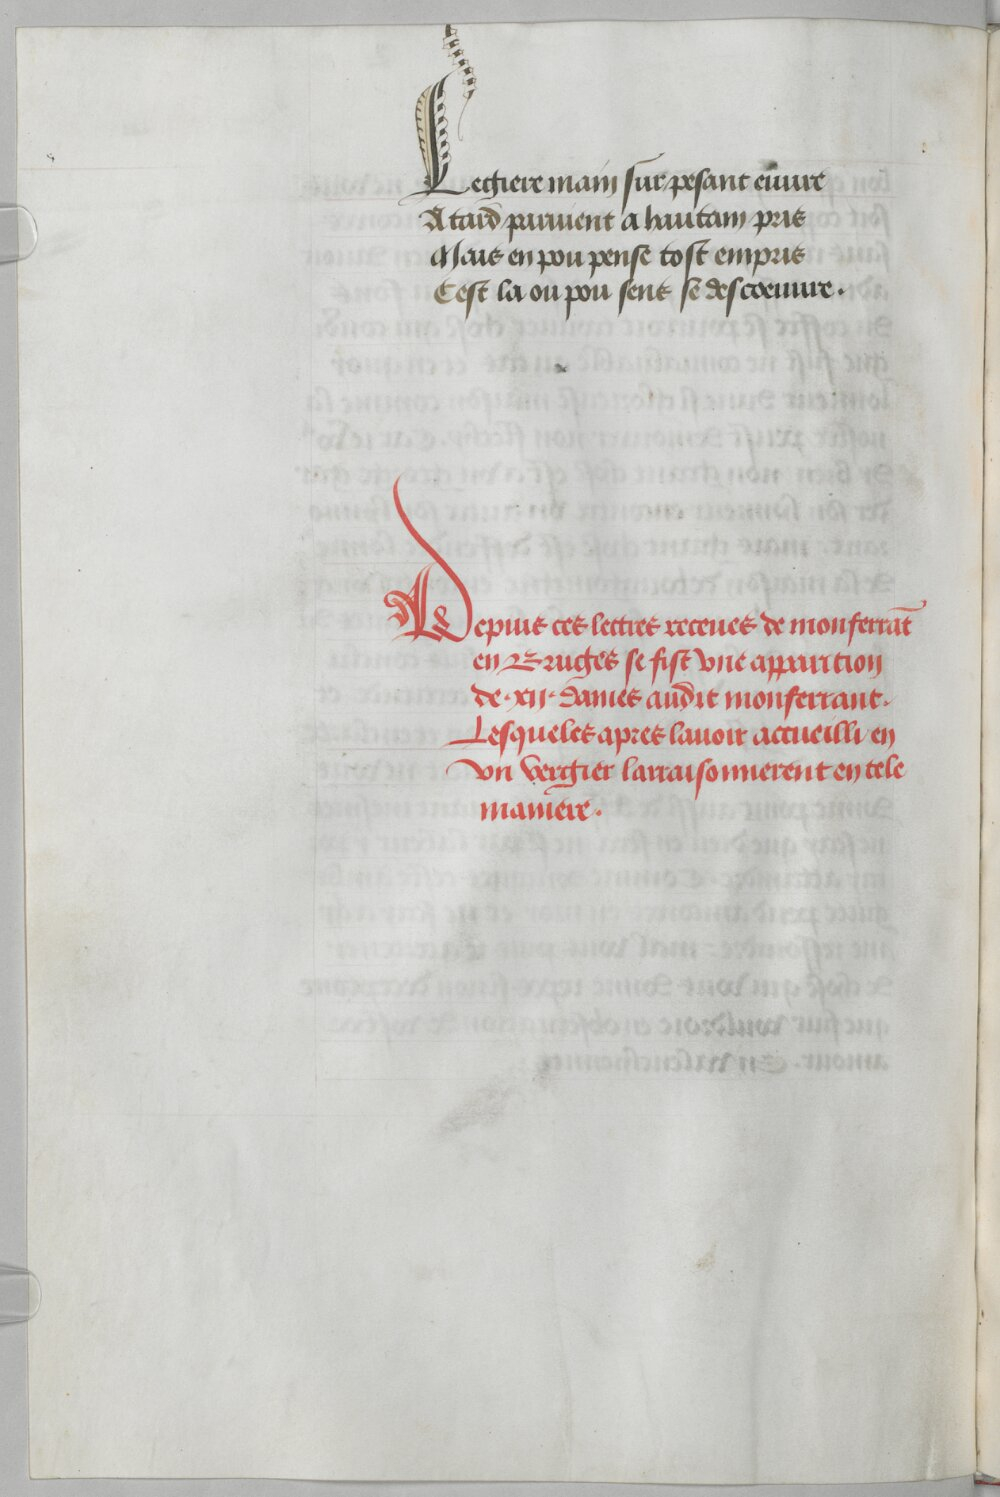 Legiere main sur pesant euure
A tard paruient a haultain pris
Mais en pou pense tost empris
Cest la ou pou sens se descoeuure.
Depuis ces lectres receues de monferrãt
en Bruges se fist vne apparition
de .xii. dames audit monferrant.
Lesqueles apres lauoir accueilli en
vn vergier larraisonnerent en tele
maniere.